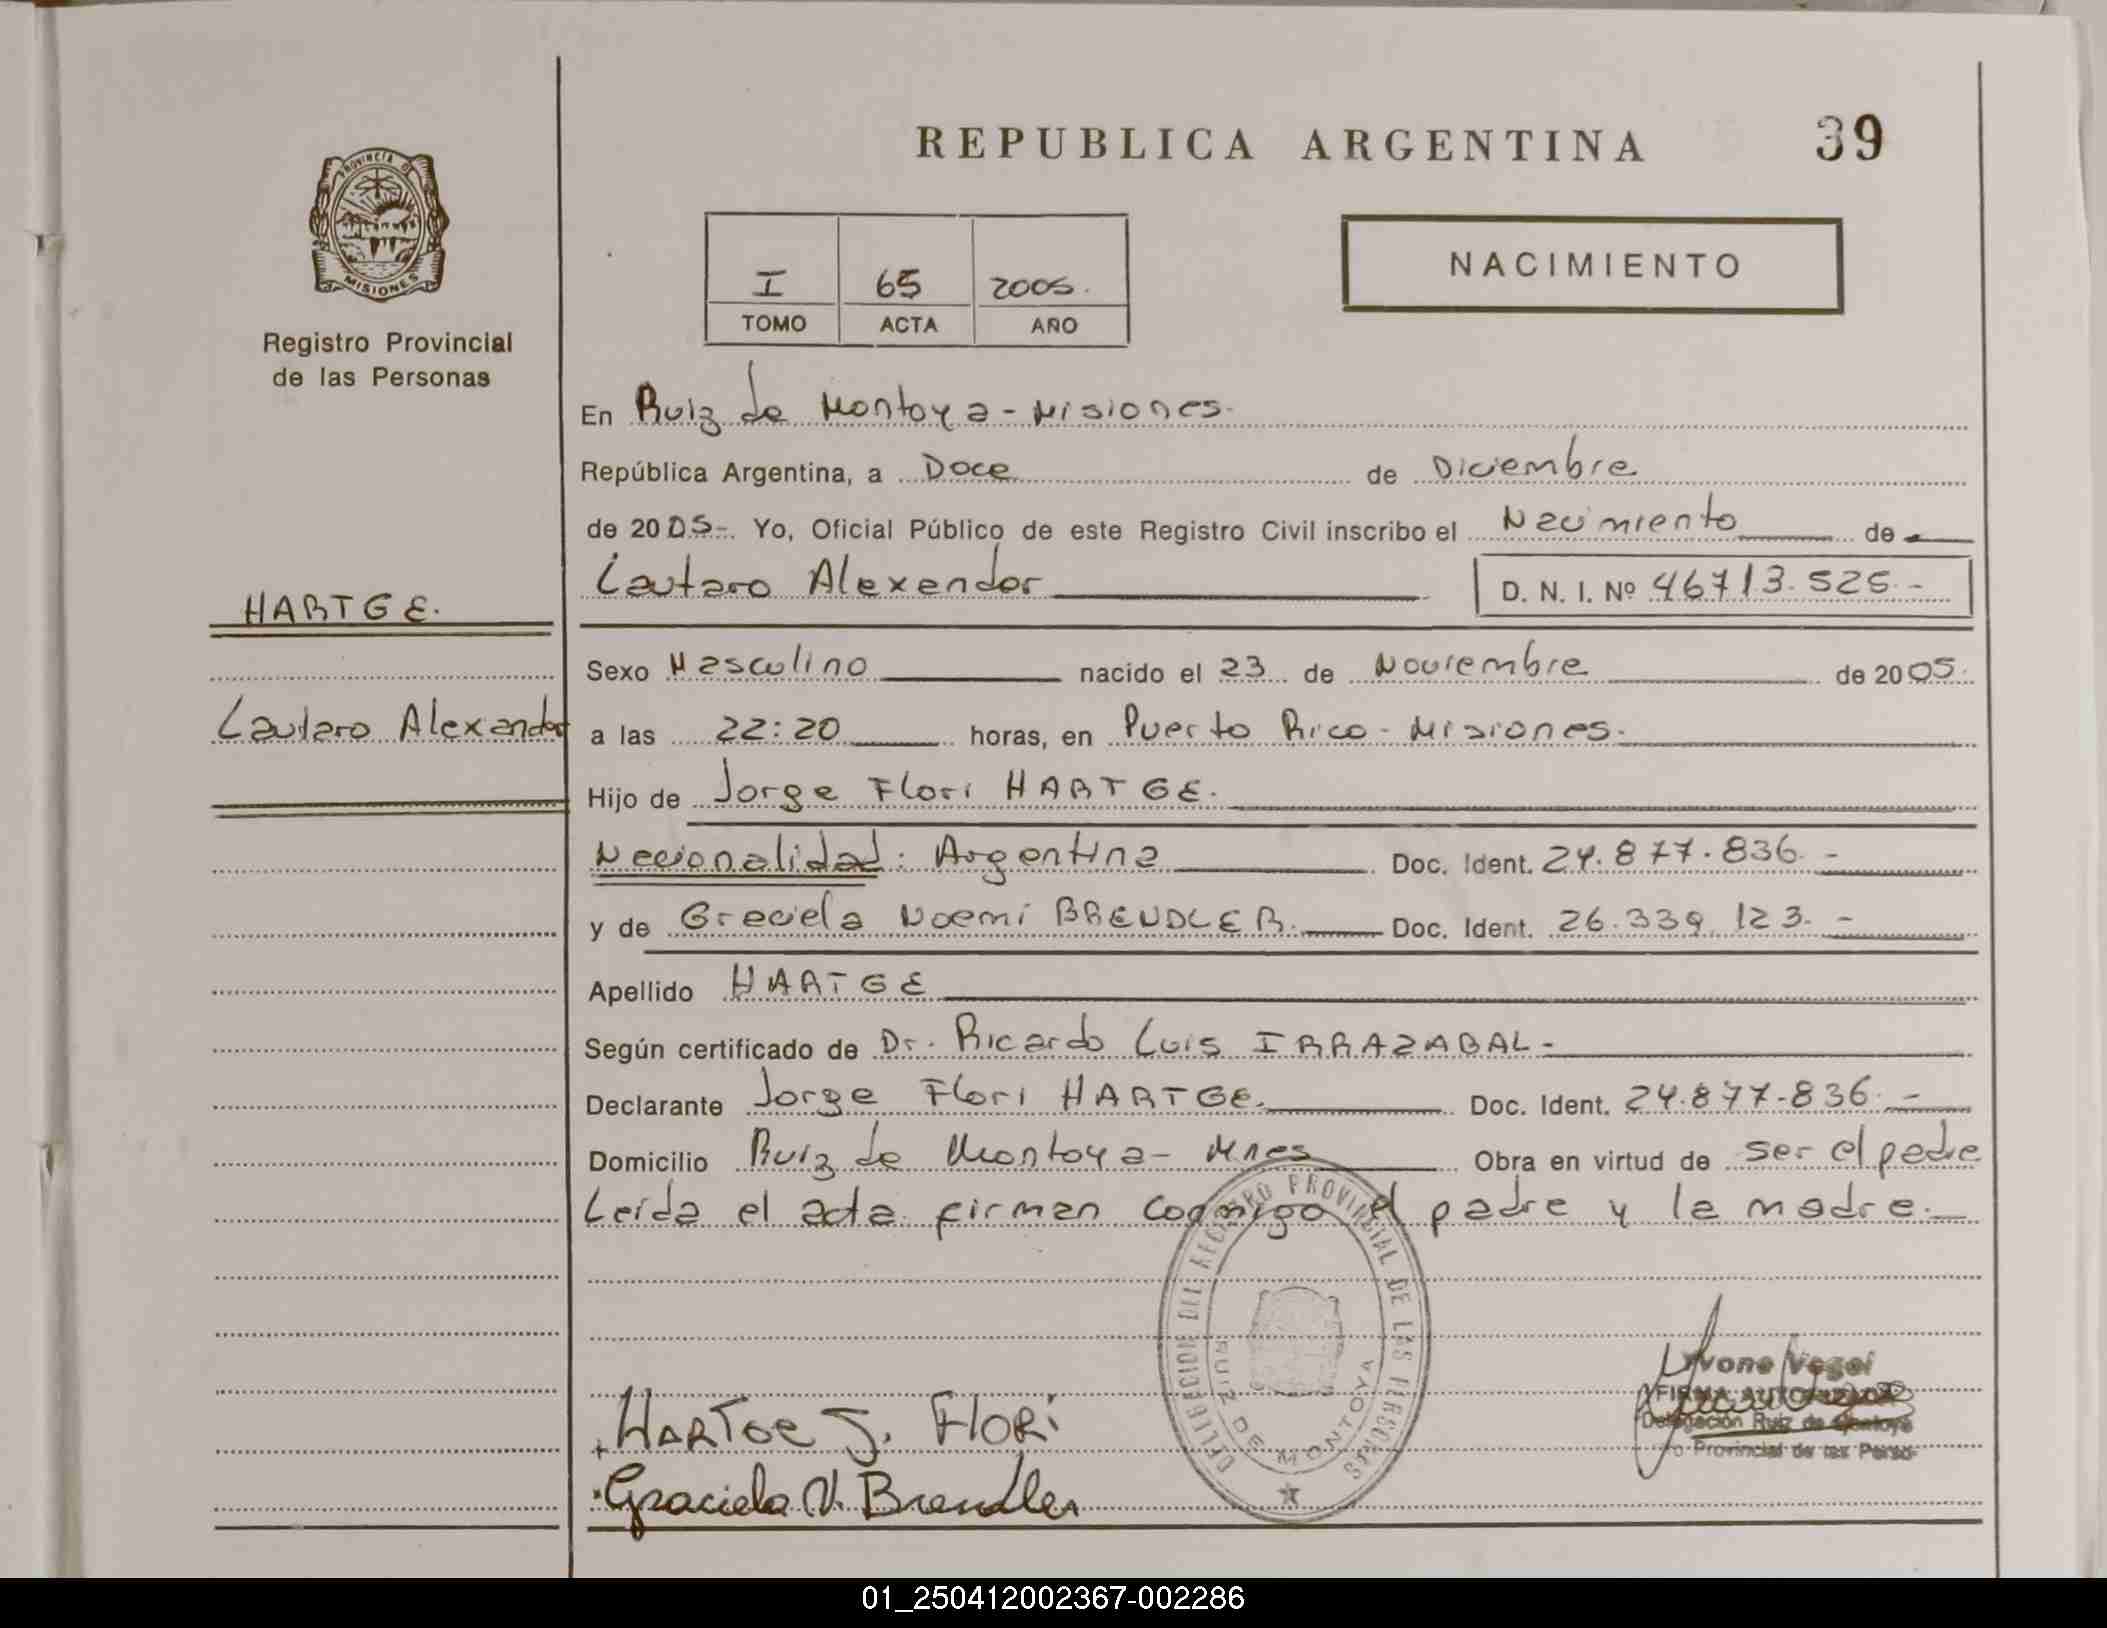 REPUBLICA ARGENTINA
39
PROVINCIA DE
MISIONES
Registro Provincial
de las Personas
I 65 2005.
TOMO ACTA AÑO
NACIMIENTO
En Ruiz de Montoya - Misiones.
República Argentina, a Doce de Diciembre
de 2005-. Yo, Oficial Público de este Registro Civil inscribo el Nacimiento de
Lautaro Alexander D. N. I. Nº 46713.525.-
HARTGE.
Sexo Masculino nacido el 23 de Noviembre de 2005.
Lautaro Alexander
a las 22:20 horas, en Puerto Rico - Misiones.
Hijo de Jorge Flori HARTGE.
Nacionalidad: Argentina Doc. Ident. 24.877.836.-
y de Graciela Noemi BRENDLER. Doc. Ident. 26.339.123.-
Apellido HARTGE
Según certificado de Dr. Ricardo Luis IRRAZABAL-
Declarante Jorge Flori HARTGE. Doc. Ident. 24.877.836.-
Domicilio Ruiz de Montoya - Mnes Obra en virtud de ser el padre
Leída el acta firman conmigo el padre y la madre.
DELEGACION DEL REGISTRO PROVINCIAL DE LAS PERSONAS
RUIZ DE MONTOYA
Yvone Vogel
FIRMA AUTORIZADA
Delegación Ruiz de Montoya
o Provincial de las Perso
HARTGE J. FLORI
Graciela N. Brendler
01_250412002367-002286